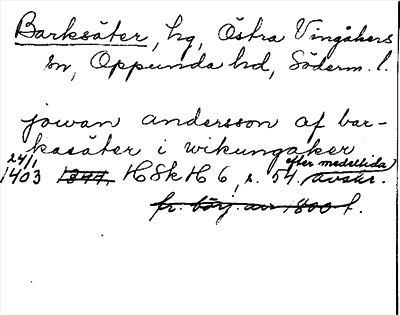 Barksäter, hg, Östra Vingåkers
sn, Oppunda hd, Söderm. l.
jowan andersson af bar-
kasäter i wikungaker
24/1 efter medeltida
1403 1377, HSkH 6, s. 54. avskr.
fr. börj. av 1800 t.